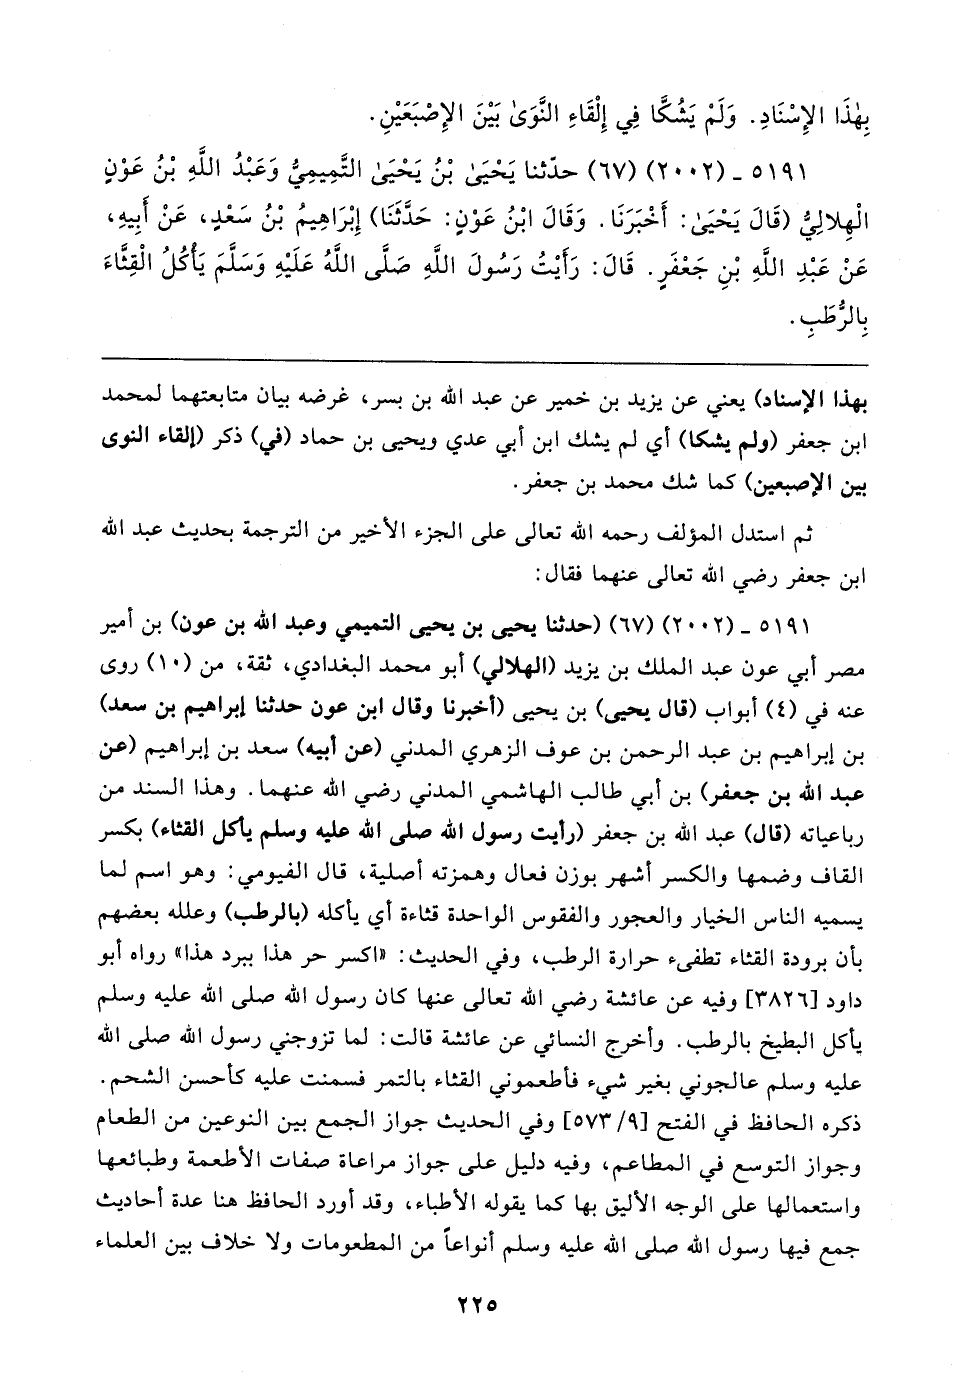 بِهٰذَا الإِسْنَادِ. وَلَمْ يَشُكَّا فِي إِلْقَاءِ النَّوَىٰ بَيْنَ الإِصْبَعَيْنِ.
٥١٩١ ـ (٢٠٠٢) (٦٧) حدّثنا يَحْيَىٰ بْنُ يَحْيَىٰ التَّمِيمِيُّ وَعَبْدُ اللَّهِ بْنُ عَوْنٍ
الْهِلالِيُّ (قَالَ يَحْيَىٰ: أَخْبَرَنَا. وَقَالَ ابْنُ عَوْنٍ: حَدَّثَنَا) إِبْرَاهِيمُ بْنُ سَعْدٍ، عَنْ أَبِيهِ،
عَنْ عَبْدِ اللَّهِ بْنِ جَعْفَرٍ. قَالَ: رَأَيْتُ رَسُولَ اللَّهِ صَلَّى اللَّهُ عَلَيْهِ وَسَلَّمَ يَأْكُلُ الْقِثَّاءَ
بِالرُّطَبِ.
بهذا الإسناد) يعني عن يزيد بن خمير عن عبد الله بن بسر، غرضه بيان متابعتهما لمحمد
ابن جعفر (ولم يشكا) أي لم يشك ابن أبي عدي ويحيى بن حماد (في) ذكر (إلقاء النوى
بين الإصبعين) كما شك محمد بن جعفر.
ثم استدل المؤلف رحمه الله تعالى على الجزء الأخير من الترجمة بحديث عبد الله
ابن جعفر رضي الله تعالى عنهما فقال:
٥١٩١ ـ (٢٠٠٢) (٦٧) (حدثنا يحيى بن يحيى التميمي وعبد الله بن عون) بن أمير
مصر أبي عون عبد الملك بن يزيد (الهلالي) أبو محمد البغدادي، ثقة، من (١٠) روى
عنه في (٤) أبواب (قال يحيى) بن يحيى (أخبرنا وقال ابن عون حدثنا إبراهيم بن سعد)
بن إبراهيم بن عبد الرحمن بن عوف الزهري المدني (عن أبيه) سعد بن إبراهيم (عن
عبد الله بن جعفر) بن أبي طالب الهاشمي المدني رضي الله عنهما. وهذا السند من
رباعياته (قال) عبد الله بن جعفر (رأيت رسول الله صلى الله عليه وسلم يأكل القثاء) بكسر
القاف وضمها والكسر أشهر بوزن فعال وهمزته أصلية، قال الفيومي: وهو اسم لما
يسميه الناس الخيار والعجور والفقوس الواحدة قثاءة أي يأكله (بالرطب) وعلله بعضهم
بأن برودة القثاء تطفىء حرارة الرطب، وفي الحديث: «اكسر حر هذا ببرد هذا» رواه أبو
داود [٣٨٢٦] وفيه عن عائشة رضي الله تعالى عنها كان رسول الله صلى الله عليه وسلم
يأكل البطيخ بالرطب. وأخرج النسائي عن عائشة قالت: لما تزوجني رسول الله صلى الله
عليه وسلم عالجوني بغير شيء فأطعموني القثاء بالتمر فسمنت عليه كأحسن الشحم.
ذكره الحافظ في الفتح [٩/ ٥٧٣] وفي الحديث جواز الجمع بين النوعين من الطعام
وجواز التوسع في المطاعم، وفيه دليل على جواز مراعاة صفات الأطعمة وطبائعها
واستعمالها على الوجه الأليق بها كما يقوله الأطباء، وقد أورد الحافظ هنا عدة أحاديث
جمع فيها رسول الله صلى الله عليه وسلم أنواعاً من المطعومات ولا خلاف بين العلماء
٢٢٥